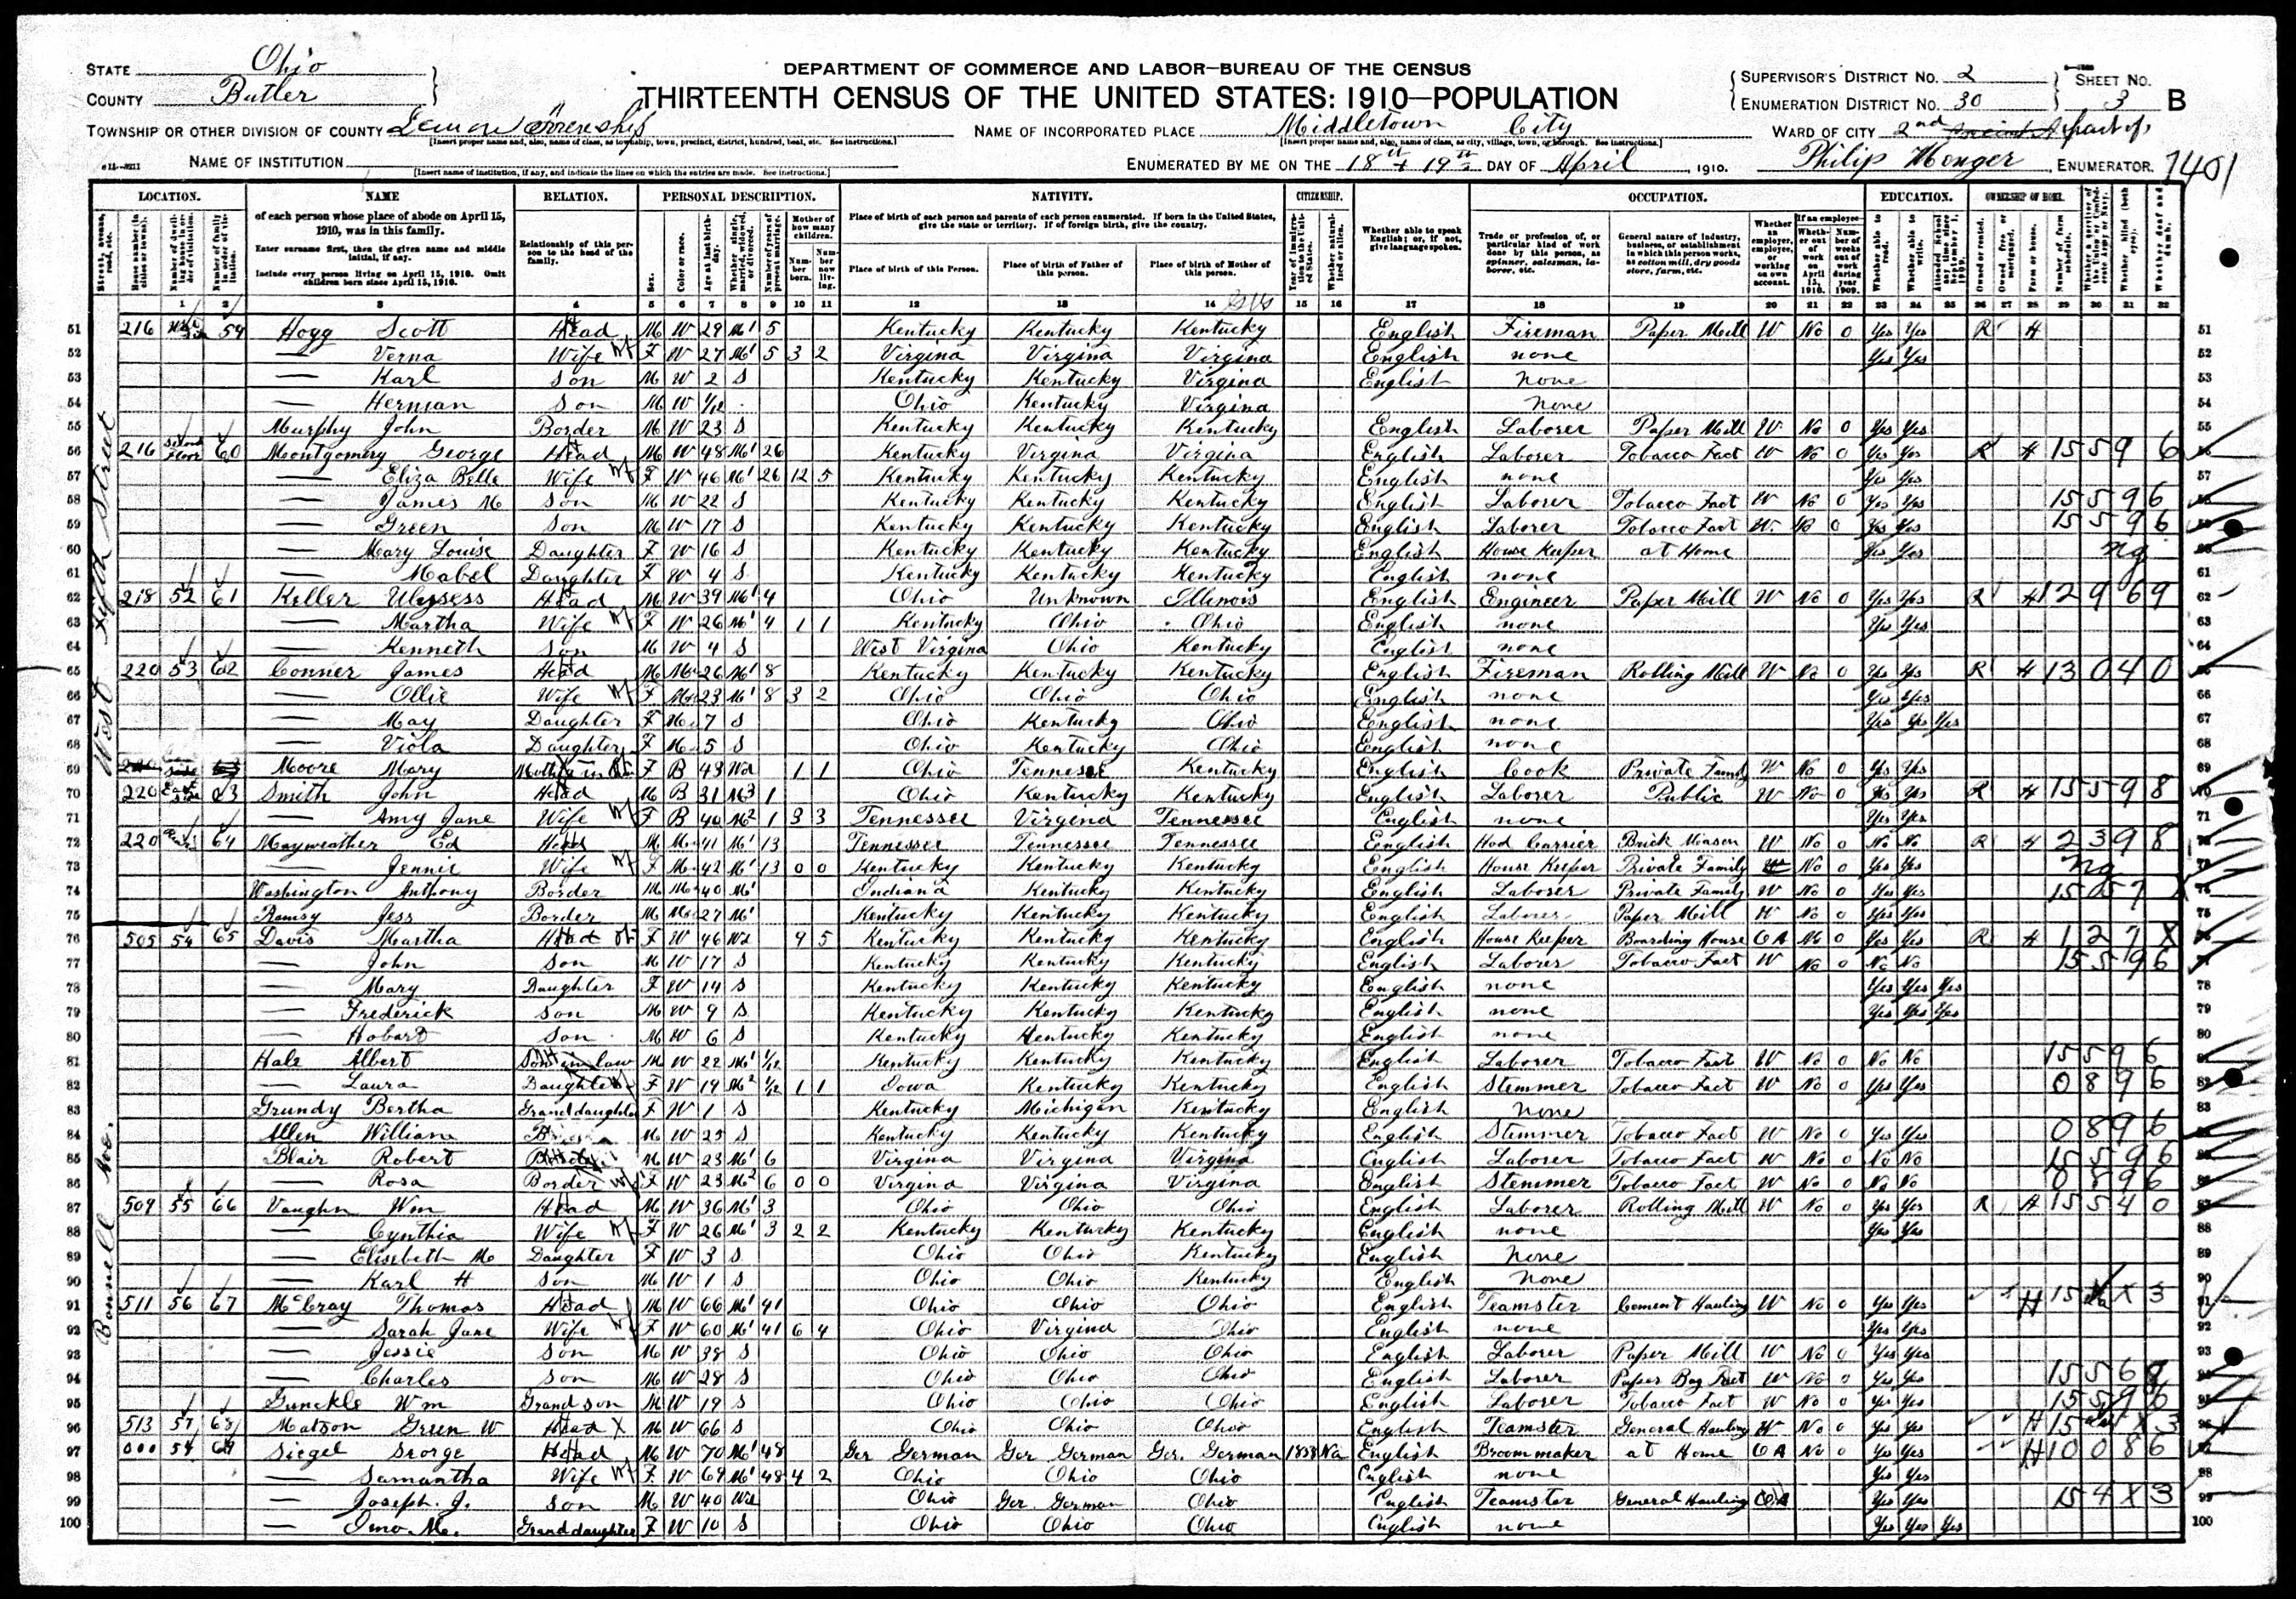 STATE Ohio
COUNTY Butler
DEPARTMENT OF COMMERCE AND LABOR—BUREAU OF THE CENSUS
THIRTEENTH CENSUS OF THE UNITED STATES: 1910—POPULATION
SUPERVISOR'S DISTRICT No. 2
ENUMERATION DISTRICT No. 30
SHEET No. 3 B
TOWNSHIP OR OTHER DIVISION OF COUNTY Lemon Township
NAME OF INCORPORATED PLACE Middletown City
WARD OF CITY 2nd part of
[Insert proper name and, also, name of class, as township, town, precinct, district, hundred, beat, etc. See instructions.]
[Insert proper name and, also, name of class, as city, village, town, or borough. See instructions.]
NAME OF INSTITUTION
[Insert name of institution, if any, and indicate the lines on which the entries are made. See instructions.]
ENUMERATED BY ME ON THE 18th + 19th DAY OF April, 1910. Philip ENUMERATOR. 7401
LOCATION. NAME RELATION. PERSONAL DESCRIPTION. NATIVITY. CITIZENSHIP. OCCUPATION. EDUCATION. OWNERSHIP OF HOME.
West Fifth Street
51 216 59 Hogg Scott Head M W 29 M1 5 Kentucky Kentucky Kentucky English Fireman Paper Mill W No 0 Yes Yes R H 51
52 — Verna Wife F W 27 M1 5 3 2 Virgina Virgina Virgina English none Yes Yes 52
53 — Karl Son M W 2 S Kentucky Kentucky Virgina English None 53
54 — Herman Son M W 1/12 Ohio Kentucky Virgina None 54
55 Murphy John Border M W 23 S Kentucky Kentucky Kentucky English Laborer Paper Mill W No 0 Yes Yes 55
56 216 Second Floor 60 Montgomery George Head M W 48 M1 26 Kentucky Virgina Virgina English Laborer Tobacco Fact W No 0 Yes Yes R H 1559 6
57 — Eliza Belle Wife F W 46 M1 26 12 5 Kentucky Kentucky Kentucky English none Yes Yes 57
58 — James M Son M W 22 S Kentucky Kentucky Kentucky English Laborer Tobacco Fact W No 0 Yes Yes 15596
59 — Green Son M W 17 S Kentucky Kentucky Kentucky English Laborer Tobacco Fact W No 0 Yes Yes 15596
60 — Mary Louise Daughter F W 16 S Kentucky Kentucky Kentucky English House Keeper at Home Yes Yes ng
61 — Mabel Daughter F W 4 S Kentucky Kentucky Kentucky English none 61
62 218 52 61 Keller Ulyssess Head M W 39 M1 4 Ohio Unknown Illinois English Engineer Paper Mill W No 0 Yes Yes R H 12969 62
63 — Martha Wife F W 26 M1 4 1 1 Kentucky Ohio Ohio English none Yes Yes 63
64 — Kenneth Son M W 4 S West Virgina Ohio Kentucky English none 64
65 220 53 62 Conner James Head M Mu 26 M1 8 Kentucky Kentucky Kentucky English Fireman Rolling Mill W No 0 Yes Yes R H 13040
66 — Ollie Wife F Mu 23 M1 8 3 2 Ohio Ohio Ohio English none Yes Yes 66
67 — May Daughter F Mu 7 S Ohio Kentucky Ohio English none Yes Yes Yes 67
68 — Viola Daughter F Mu 5 S Ohio Kentucky Ohio English none 68
69 Moore Mary Mother in law F B 43 Wd 1 1 Ohio Tennesee Kentucky English Cook Private Family W No 0 Yes Yes 69
70 220 East side 63 Smith John Head M B 31 M3 1 Ohio Kentucky Kentucky English Laborer Public W No 0 Yes Yes R H 15598
71 — Amy Jane Wife F B 40 M2 1 3 3 Tennessee Virgina Tennessee English none Yes Yes 71
72 220 Rear 64 Mayweather Ed Head M Mu 41 M1 13 Tennessee Tennessee Tennessee English Hod Carrier Brick Mason W No 0 No No R H 2398
73 — Jennie Wife F Mu 42 M1 13 0 0 Kentucky Kentucky Kentucky English House Keeper Private Family No 0 Yes Yes ng
74 Washington Anthony Border M Mu 40 M1 Indiana Kentucky Kentucky English Laborer Private Family W No 0 Yes Yes 1507 X
75 Ramsy Jess Border M Mu 27 M1 Kentucky Kentucky Kentucky English Laborer Paper Mill W No 0 Yes Yes 75
Bonnell Ave.
76 505 54 65 Davis Martha Head F W 46 Wd 9 5 Kentucky Kentucky Kentucky English House Keeper Boarding House OA No 0 Yes Yes R H 127X
77 — John Son M W 17 S Kentucky Kentucky Kentucky English Laborer Tobacco Fact W No 0 No No 15596
78 — Mary Daughter F W 14 S Kentucky Kentucky Kentucky English none Yes Yes Yes 78
79 — Frederick Son M W 9 S Kentucky Kentucky Kentucky English none Yes Yes Yes 79
80 — Hobart Son M W 6 S Kentucky Kentucky Kentucky English none 80
81 Hale Albert Son in law M W 22 M1 1/12 Kentucky Kentucky Kentucky English Laborer Tobacco Fact W No 0 No No 15596
82 — Laura Daughter F W 19 M2 1/12 1 1 Iowa Kentucky Kentucky English Stemmer Tobacco Fact W No 0 Yes Yes 0896
83 Grundy Bertha Granddaughter F W 1 S Kentucky Michigan Kentucky English None 83
84 Allen William M W 25 S Kentucky Kentucky Kentucky English Stemmer Tobacco Fact W No 0 Yes Yes 0896
85 Blair Robert Border M W 23 M1 6 Virgina Virgina Virgina English Laborer Tobacco Fact W No 0 No No 15596
86 — Rosa Border F W 23 M2 6 0 0 Virgina Virgina Virgina English Stemmer Tobacco Fact W No 0 No No 0896
87 509 55 66 Vaughn Wm Head M W 36 M1 3 Ohio Ohio Ohio English Laborer Rolling Mill W No 0 Yes Yes R H 15540 87
88 — Cynthia Wife F W 26 M1 3 2 2 Kentucky Kentucky Kentucky English none Yes Yes 88
89 — Elisebeth M Daughter F W 3 S Ohio Ohio Kentucky English None 89
90 — Karl H Son M W 1 S Ohio Ohio Kentucky English None 90
91 511 56 67 McCray Thomas Head M W 66 M1 41 Ohio Ohio Ohio English Teamster Cement Hauling W No 0 Yes Yes H 15 X 3
92 — Sarah Jane Wife F W 60 M1 41 6 4 Ohio Virgina Ohio English none Yes Yes 92
93 — Jessie Son M W 38 S Ohio Ohio Ohio English Laborer Paper Mill W No 0 Yes Yes 93
94 — Charles Son M W 28 S Ohio Ohio Ohio English Laborer Paper Bag Fact W No 0 Yes Yes 15569
95 Gunckle Wm Grandson M W 19 S Ohio Ohio Ohio English Laborer Tobacco Fact W No 0 Yes Yes 15596
96 513 57 68 Matson Green W Head X M W 66 S Ohio Ohio Ohio English Teamster General Hauling W No 0 Yes Yes H 15 X 3
97 000 58 69 Siegel George Head M W 70 M1 48 Ger German Ger German Ger. German 1853 Na English Broom maker at Home OA No 0 Yes Yes H 10086
98 — Samantha Wife F W 69 M1 48 4 2 Ohio Ohio Ohio English none Yes Yes 98
99 — Joseph. J. Son M W 40 Wd Ohio Ger German Ohio English Teamster General Hauling OA Yes Yes 154X3
100 — Omo. M. Granddaughter F W 10 S Ohio Ohio Ohio English none Yes Yes Yes 100